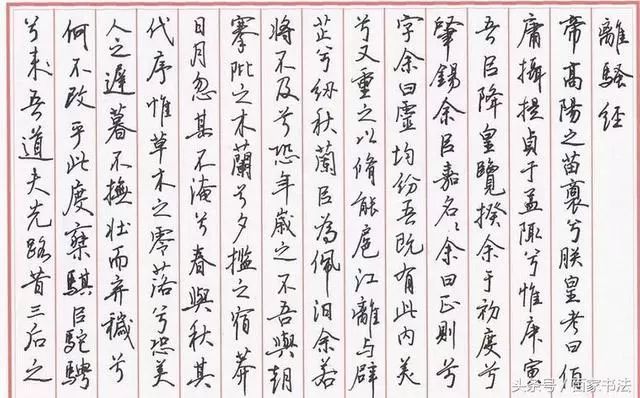 離騷經
帝高陽之苗裔兮朕皇考曰伯
庸攝提貞于孟陬兮惟庚寅
吾㠯降皇覽揆余于初度兮
肇錫余㠯嘉名〻余曰正則兮
字余曰靈均紛吾既有此內美
兮又重之以脩能扈江離与辟
芷兮紉秋蘭㠯為佩汩余若
將不及兮恐年歲之不吾與朝
搴阰之木蘭兮夕攬之宿莽
日月忽其不淹兮春與秋其
代序惟草木之零落兮恐美
人之遲暮不撫壯而弃穢兮
何不改乎此度椉騏㠯駝騁
兮来吾道夫先路昔三后之
头条号/画家书法